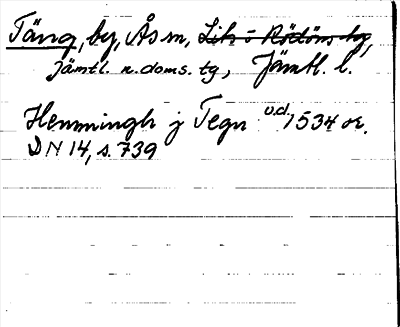 Täng, by, Ås sn, Lits o Rödöns tg,
Jämtl. n. doms. tg, Jämtl. l.
Hemmingh j Tegn o.d. 1534 or.
DN 14, s. 739